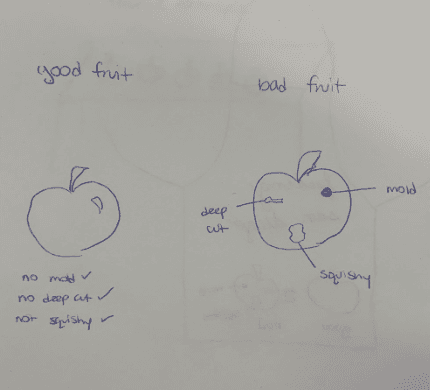 good fruit
no mold ✓
no deep cut ✓
not squishy ✓
bad fruit
deep
cut
mold
squishy